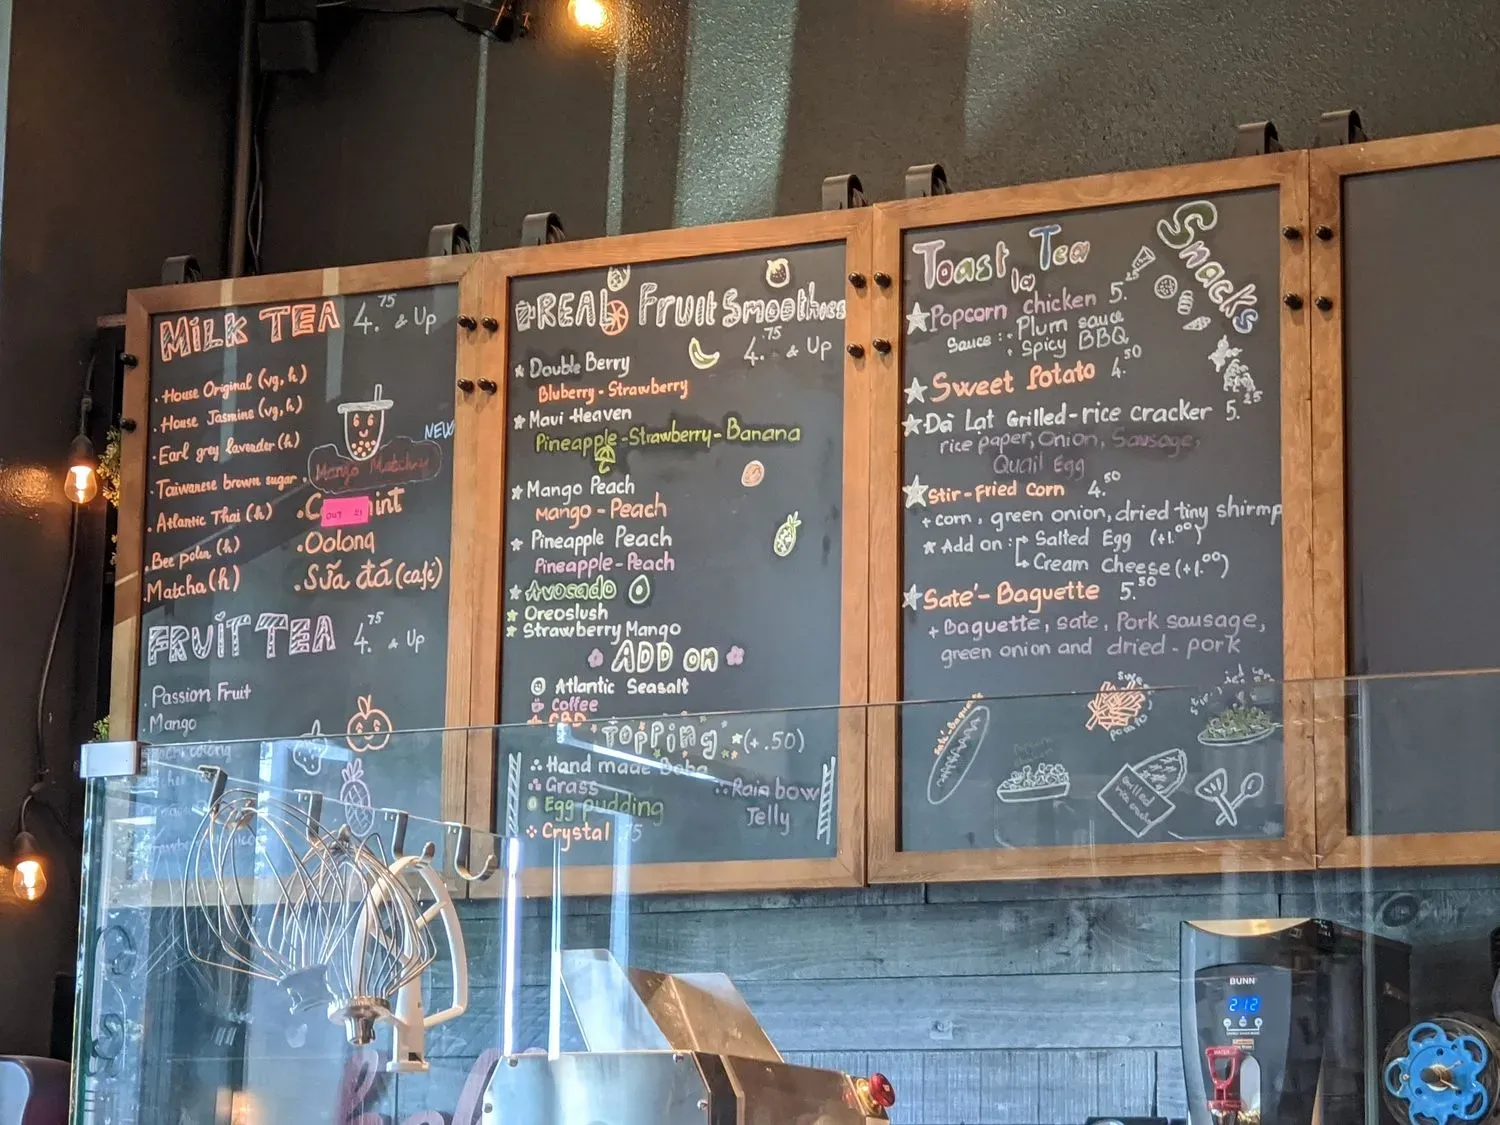 MILK TEA 4.75 & Up
· House Original (vg, h)
· House Jasmine (vg, h)
· Earl grey lavender (h)
· Taiwanese brown sugar
· Atlantic Thai (h)
· Bee polen (h)
· Matcha (h)
NEW
Mango
OUT
· Oolong
· Sữa đá (café)
FRUIT TEA 4.75 & Up
· Passion Fruit
· Mango
REAL Fruit Smoothies
4.75 & Up
Double Berry
Bluberry - Strawberry
Maui Heaven
Pineapple - Strawberry - Banana
Mango Peach
Mango - Peach
Pineapple Peach
Pineapple - Peach
Avocado
Oreoslush
Strawberry Mango
ADD on
Atlantic Seasalt
Coffee
CBD
Topping (+.50)
Hand made Boba
Grass
Egg pudding
Crystal
Rainbow
Jelly
Toast la Tea
Snacks
Popcorn chicken 5.25
Sauce : · Plum sauce
· Spicy BBQ
Sweet Potato 4.50
Đà Lạt Grilled-rice cracker 5.25
rice paper, Onion, Sausage,
Quail Egg
Stir-Fried Corn 4.50
+ corn, green onion, dried tiny shirmp
Add on : Salted Egg (+1.00)
Cream cheese (+1.00)
Sate'- Baguette 5.50
+ Baguette, sate, Pork sausage,
green onion and dried - pork
BUNN
212
WATER